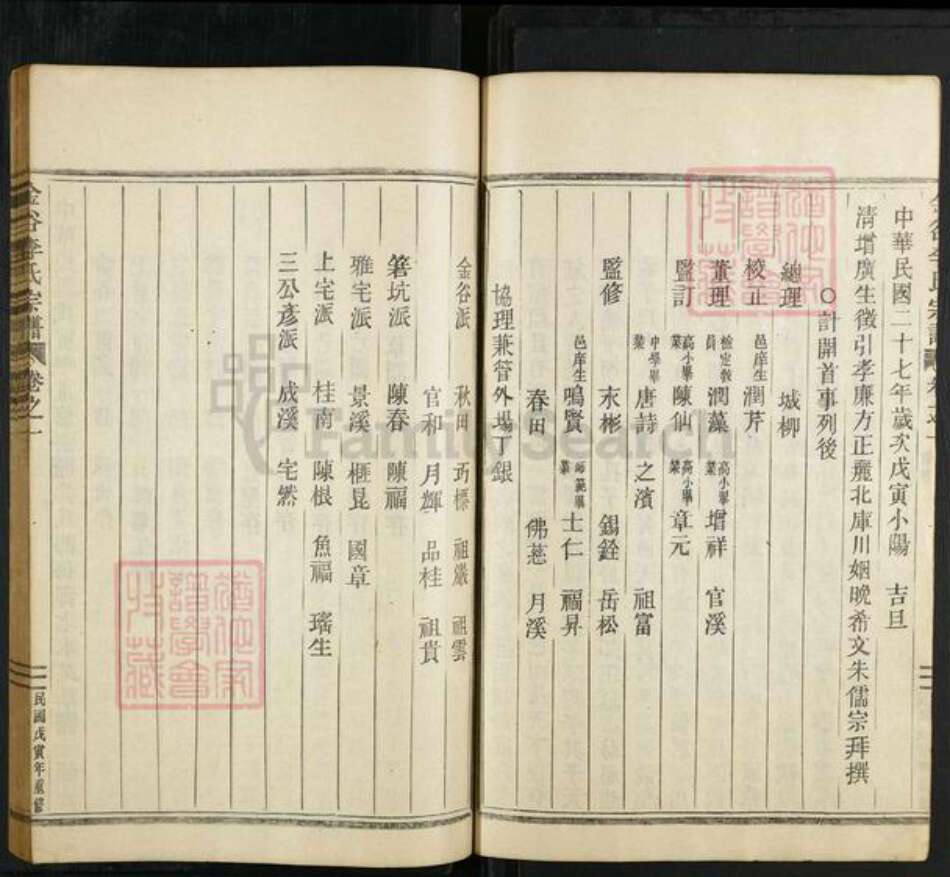 中華民國二十七年歲次戊寅小陽 吉旦
清增廣生徵引孝廉方正麗北庫川姻晚希文朱儒宗拜撰
○計開首事列後
總理 城柳
校正 邑庠生潤芹
董理 檢定教員潤藻 高小畢業增祥 官溪
監訂 高小畢業陳仙 高小畢業章元
中學畢業唐詩 之濱 祖富
監修 永彬 錫銓 岳松
邑庠生鳴賢 師範畢業士仁 福昇
春田 佛慈 月溪
協理兼管外場丁銀
金谷派 秋田 巧標 祖嚴 祖雲
官和 月輝 品桂 祖貴
箬坑派 陳春 陳福
雅宅派 景溪 櫃昆 國章
上宅派 桂南 陳根 魚福 瑤生
三公彥派 成溪 宅然
金谷李氏宗譜 卷之一
民國戊寅年重修
FamilySearch